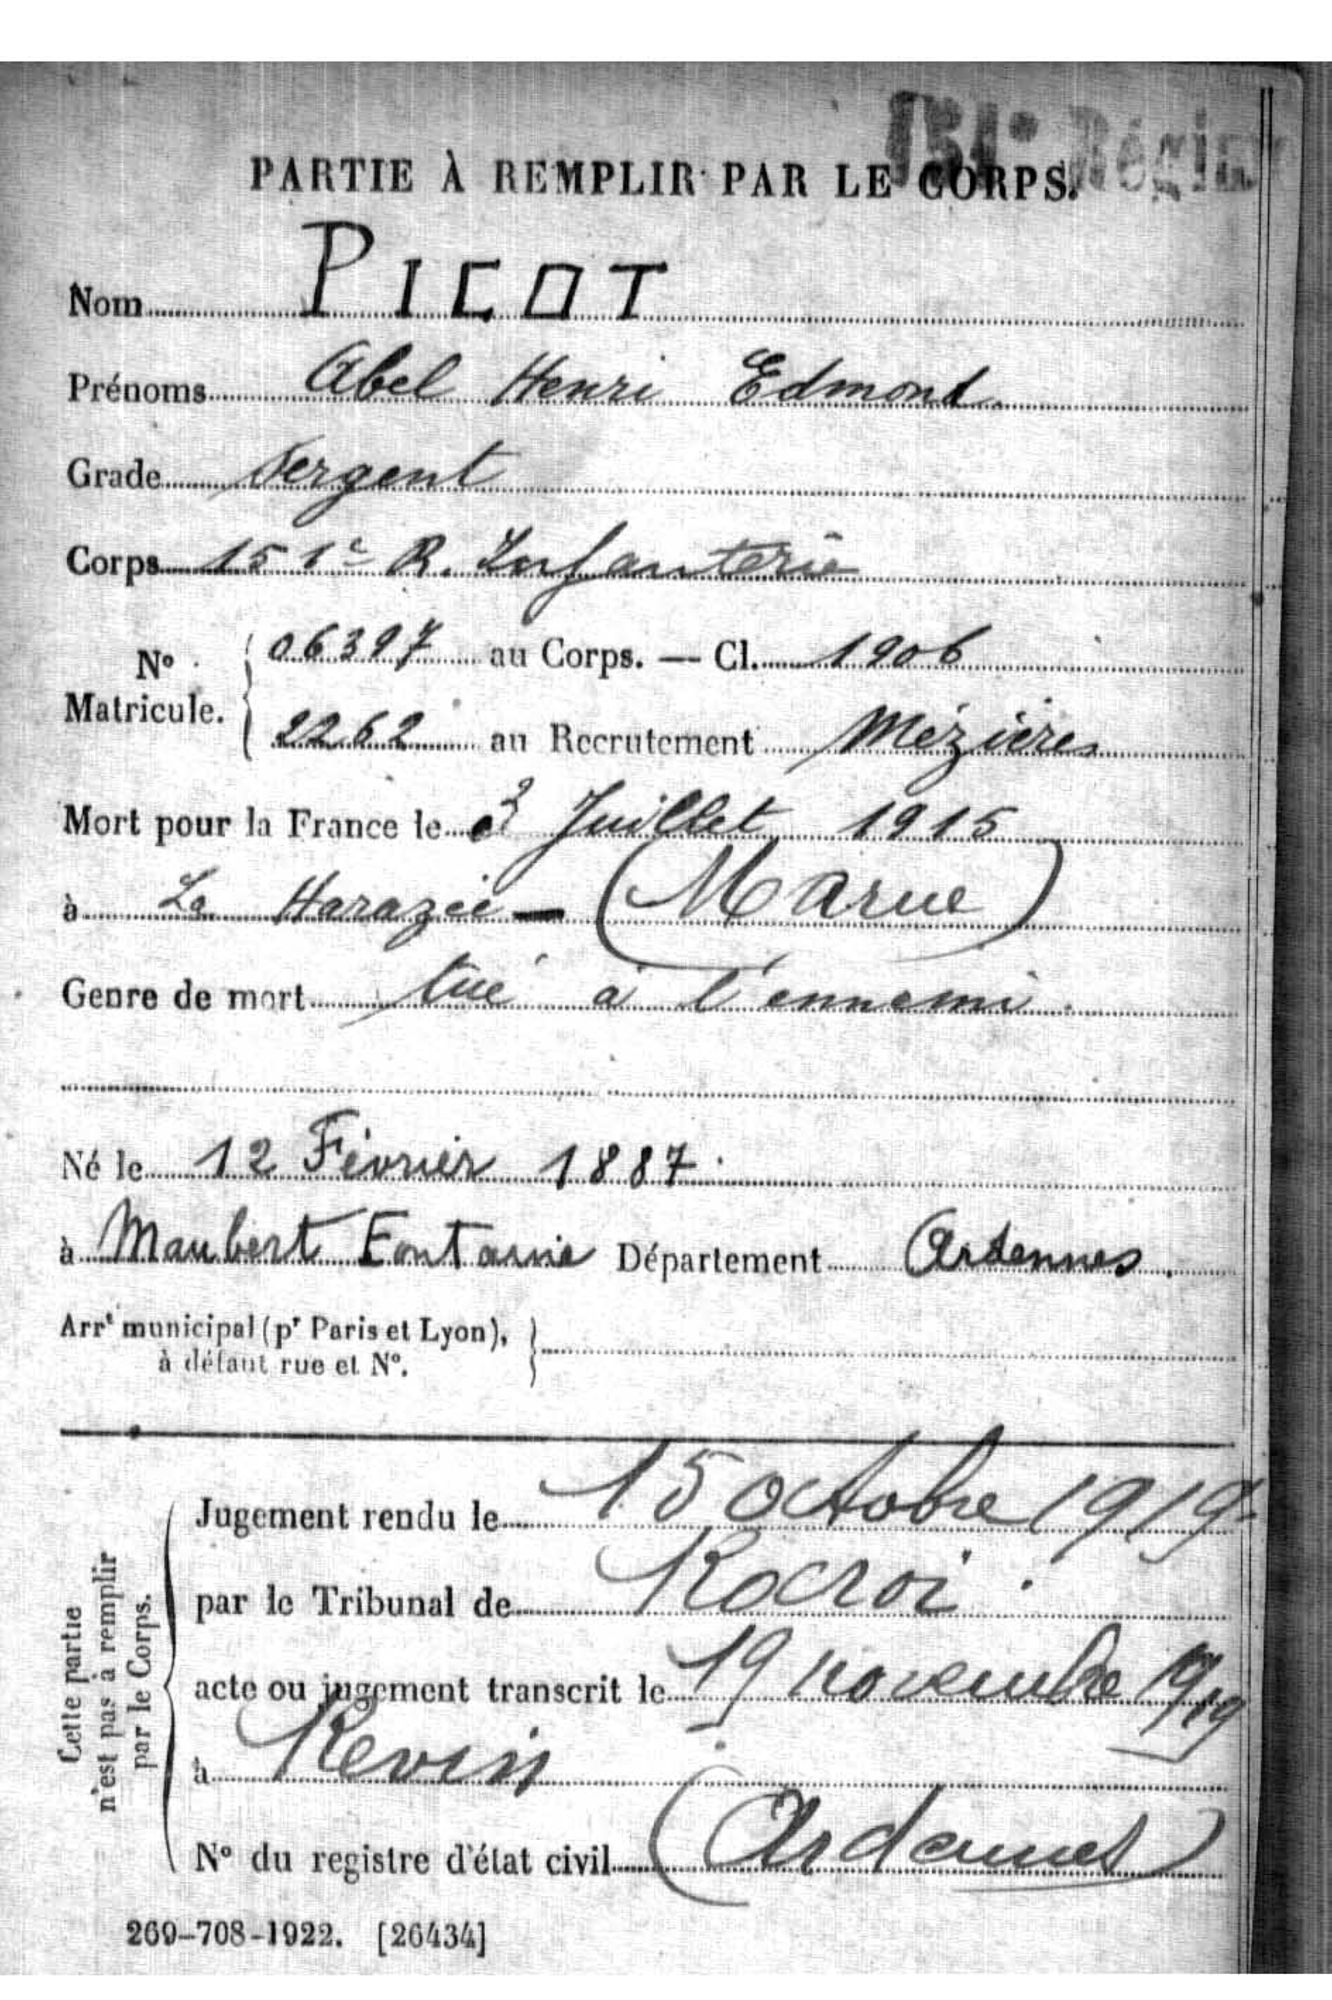 151e Régim
PARTIE À REMPLIR PAR LE CORPS.
Nom PICOT
Prénoms Abel Henri Edmond
Grade Sergent
Corps 151e R. Infanterie
No Matricule. { 06397 au Corps. — Cl. 1906
2262 au Recrutement Mézières
Mort pour la France le Juillet 1915
à La Harazée — (Marne)
Genre de mort tué à l'ennemi.
Né le 12 Février 1887.
à Maubert Fontaine Département Ardennes.
Arrt municipal (pr Paris et Lyon), }
à défaut rue et No.
Cette partie
n'est pas à remplir
par le Corps.
Jugement rendu le 15 octobre 1919
par le Tribunal de Rocroi.
acte ou jugement transcrit le 19 novembre 1919
à Revin
No du registre d'état civil (Ardennes)
269-708-1922. [26434]